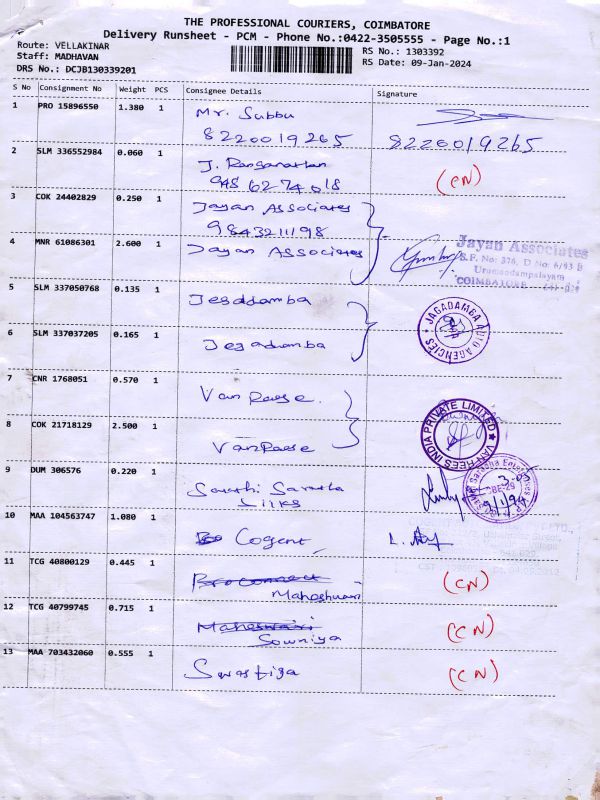 THE PROFESSIONAL COURIERS, COIMBATORE
Delivery Runsheet - PCM - Phone No.:0422-3505555 - Page No.:1
Route: VELLAKINAR
RS No.: 1303392
Staff: MADHAVAN
RS Date: 09-Jan-2024
DRS No.: DCJB130339201
S No Consignment No Weight PCS Consignee Details Signature
1 PRO 15896550 1.380 1 Mr. Subbu
8220019265 8220019265
2 SLM 336552984 0.060 1 J. Ranganathan
(CN)
3 COK 24402829 0.250 1 Jayan Associates
9843211198
4 MNR 61086301 2.600 1 Jayan Associates
Jayan Associates
S.F. No: 376, D No: 6/43 B
COIMBATORE
5 SLM 337050768 0.135 1 Jegadamba
JAGADAMBA AUTO AGENCIES
6 SLM 337037205 0.165 1 Jegadamba
7 CNR 1768051 0.570 1 Van Reese
8 COK 21718129 2.500 1 Van Reese
VAN REES INDIA PRIVATE LIMITED
9 DUM 306576 0.220 1
10 MAA 104563747 1.080 1 Cogent
11 TCG 40800129 0.445 1 Proconnect
Maheshwari
(CN)
12 TCG 40799745 0.715 1 Maheswari
Sowniya
(CN)
13 MAA 703432060 0.555 1 Swastiga
(CN)